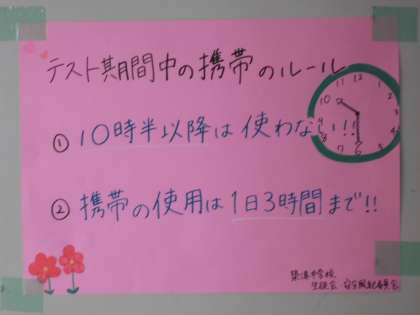 テスト期間中の携帯のルール
① 10時半以降は使わない!!
② 携帯の使用は1日3時間まで!!
中学校
生徒会